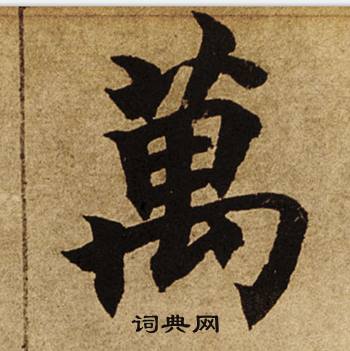 萬
词典网